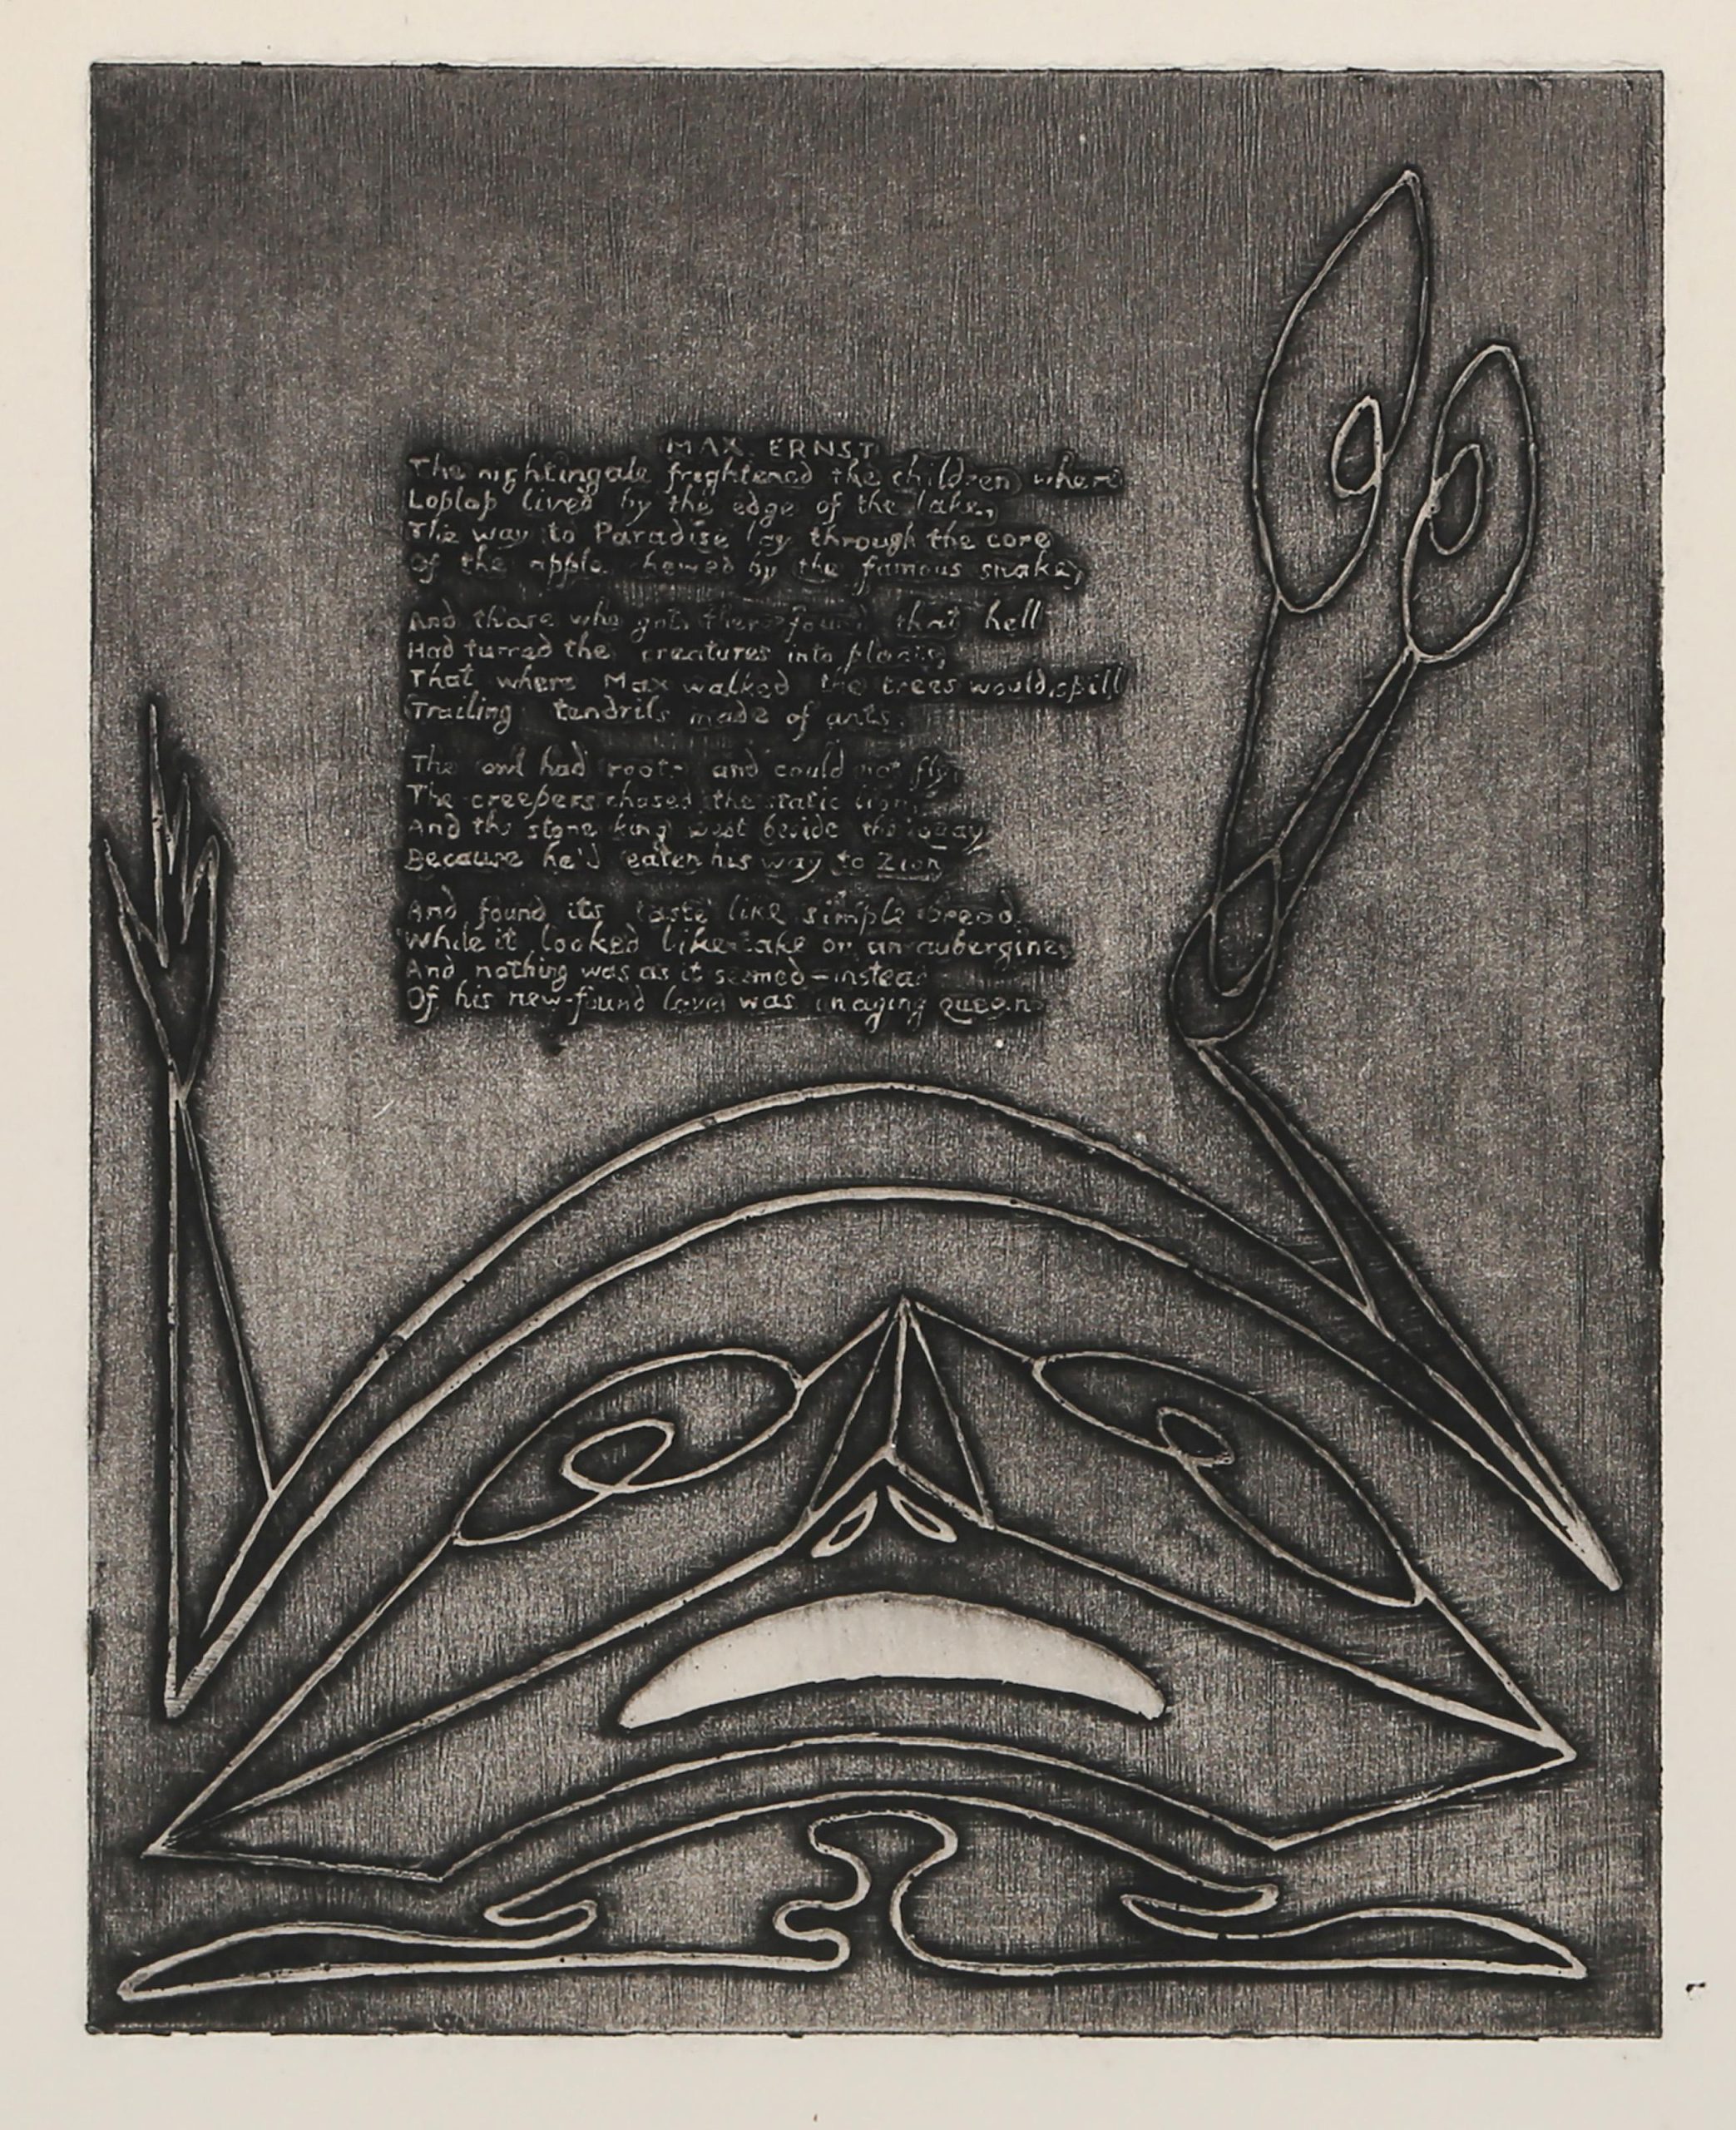 MAX ERNST
The nightingale frightened the children where
Loplop lived by the edge of the lake,
The way to Paradise lay through the core
Of the apple hewed by the famous snake,
And those who got there found that hell
Had turned the creatures into
That where Max walked the trees would spill
Trailing tendrils made of ants.
The owl had roots and could not fly,
The creepers chased the static lion,
And the stone king wept beside the quay
Because he'd eaten his way to Zion
And found its taste like simple bread
While it looked like cake or an aubergine,
And nothing was as it seemed – instead
Of his new-found love was an aging queen.